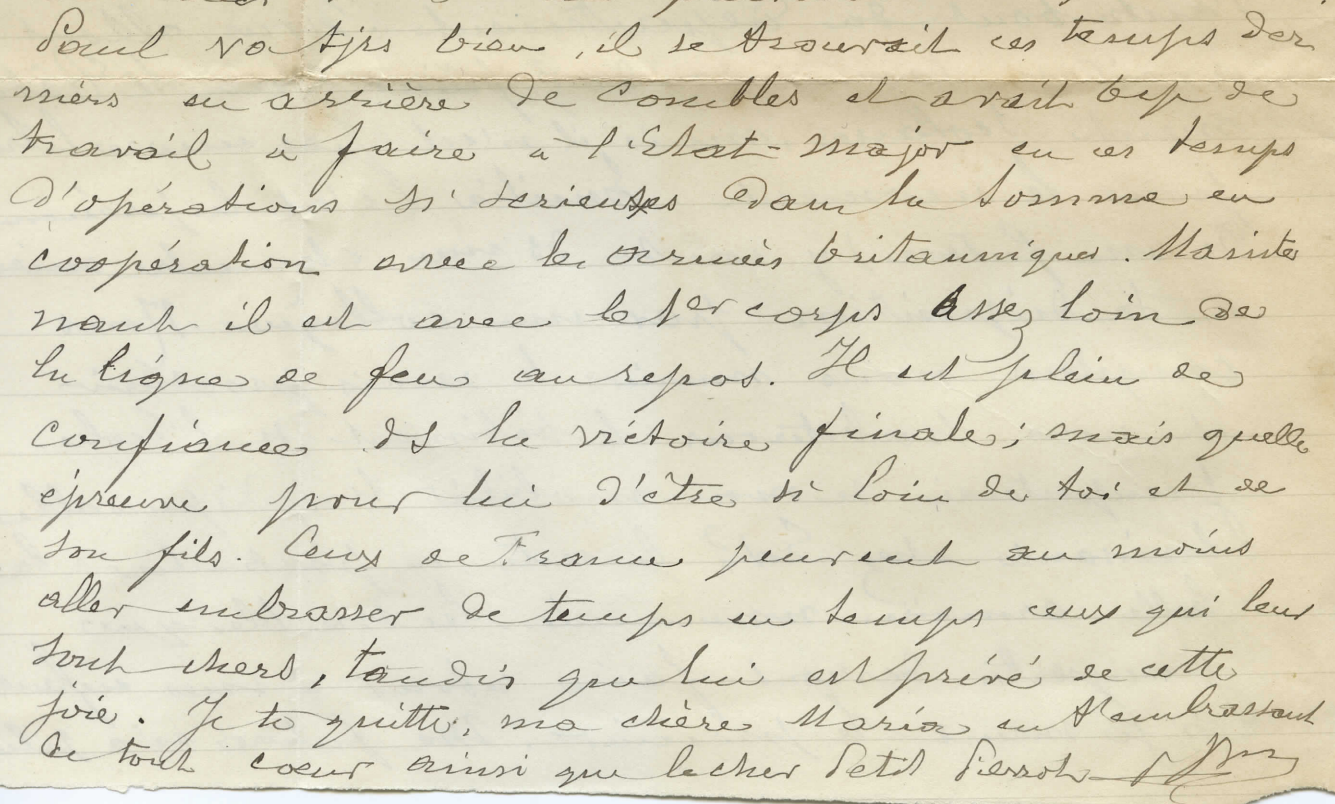 Paul va tjrs bien, il se trouvait ces temps der
niers en arrière de Combles et avait bcp de
travail à faire à l'Etat-Major en ces temps
d'opérations si serieuses dans la Somme en
coopération avec les armées britanniques. Mainte
nant il est avec le 1er corps assez loin de
la ligne de feu au repos. Il est plein de
confiance ds la victoire finale; mais quelle
épreuve pour lui d'être si loin de toi et de
son fils. Ceux de France peuvent au moins
aller embrasser de temps en temps ceux qui leur
sont chers, tandis que lui est privé de cette
joie. Je te quitte, ma chère Maria en t'embrassant
de tout coeur ainsi que le cher Petit Pierrot